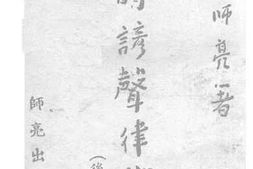 師亮著
諺聲律
(後
師亮出